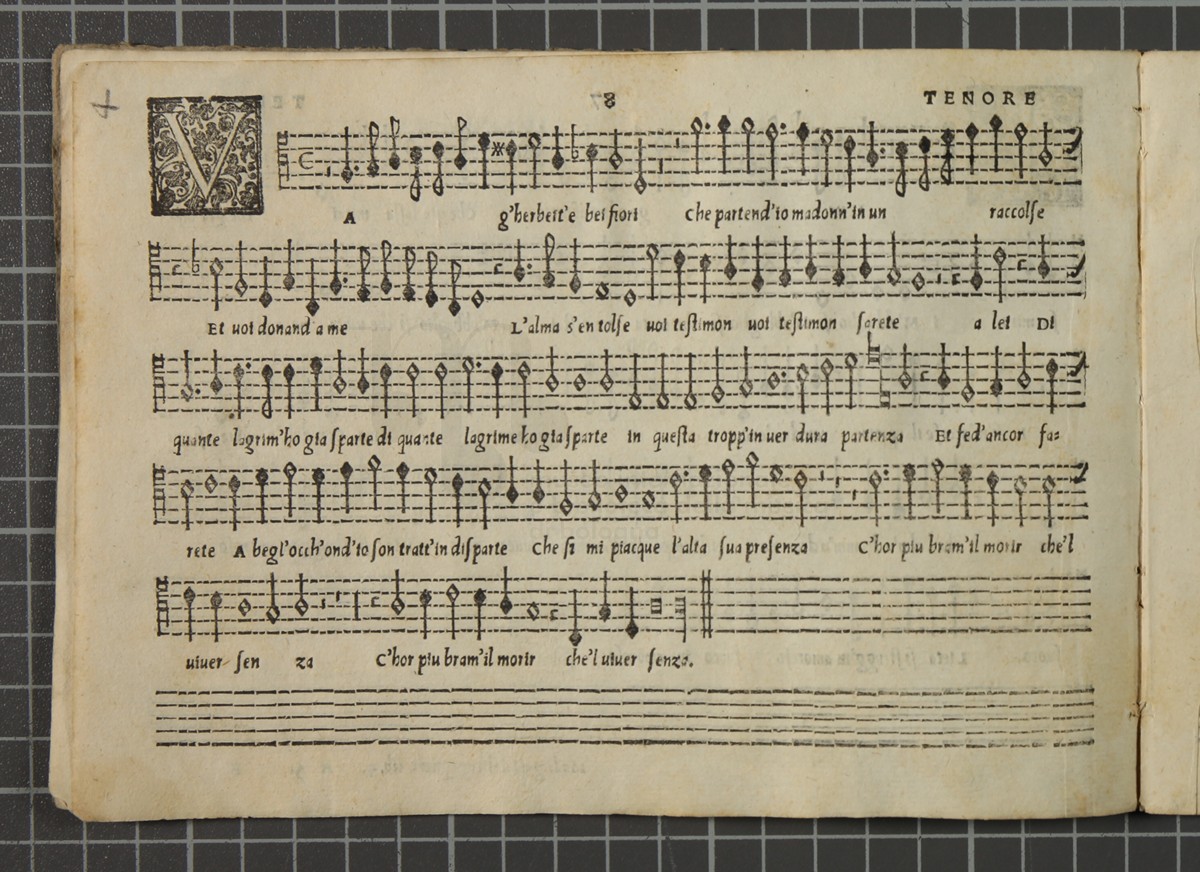 4
8 TENORE
V A g'herbett'e bei fiori Che partend'io madonn'in un raccolse
Et uoi donand'a me L'alma s'en tolse uoi testimon uoi testimon sarete a lei Di
quante lagrim'ho gia sparte di quante lagrime ho gia sparte in questa tropp'in uer dura partenza Et fed'ancor fa:
rete A begl'occh'ond'io son tratt'in disparte Che si mi piacque l'alta sua presenza C'hor piu bram'il morir che'l
uiuer sen za C'hor piu bram'il morir che'l uiuer senza.